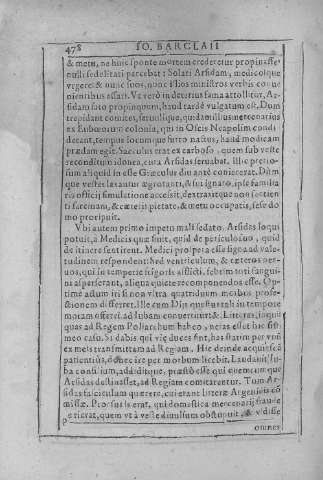 478 IO. BARCLAII
& metu, ne huic sponte mortem crederetur propinasse,
nulli sedelitati parcebat: Solari Arsidam, medicosque
vrgere: & nunc suos, nunc illos ministros verbis conue-
nientibus affari. Vt verò in deterius fama attollitur, Ar-
sidam fato propinquum, haud tardè vulgatum est. Dum
trepidant comites, seruulique, quidam illius mercenarius
ex Euboeorum colonia, qui in Oscis Neapolim condi-
derant, tempus
prædam egit. Sacculus erat ex carbaso, quem sub veste
reconditum idonea cura Arsidas seruabat. Illic pretio-
sum aliquid in esse Græculus diu antè coniecerat. Dum
que vestes laxantur ægrotanti, & fur ignarò, ipse familia
ris officij simulatione accessit, dextraque non sentien-
ti sarcinam, & cæteris pietate, & metu occupatis, sese do
mo proripuit.
Vbi autem primo impetu mali sedato, Arsidas loqui
potuit, à Medicis quæsiuit, quid de periculo suo, quid
de itinere sentirent. Medici prospera esse signa ad vale-
tudinem respondent: sed ventriculum, & cæteros ner-
uos, qui in temperie frigoris afflicti, febrim toti sangui-
ni asperserant, aliqua quiete recomponendos esse. Op-
timè actum iri si non vltra quatriduum morbus profe-
ctionem differret. Ille cum Dij que Bustali in tempore
motam afferri, ad Iubam conuertitur &, Litteras, inquit
quas ad Regem Poliarchum habeo, neras esset hic fistu-
meo casu. Si dabis qui vic duces fint, has statim per vnũ
ex meis transmittam ad Regiam. Hic deinde acquiescã
patientiùs, donec ire per morbum licebit. Laudauit Iu-
ba consilium, addiditque, præstò esse qui quemcumque
Arsidas destinasset, ad Regiam comitarentur. Tum Ar-
sidas fasciculum quærere, cui erant litteræ Argenidis cõ
missæ. Prorsus is erat, qui domestica mercenarij fraude
perierat, quem vt à veste diuulsum obstupuit, & vidisse
omnes